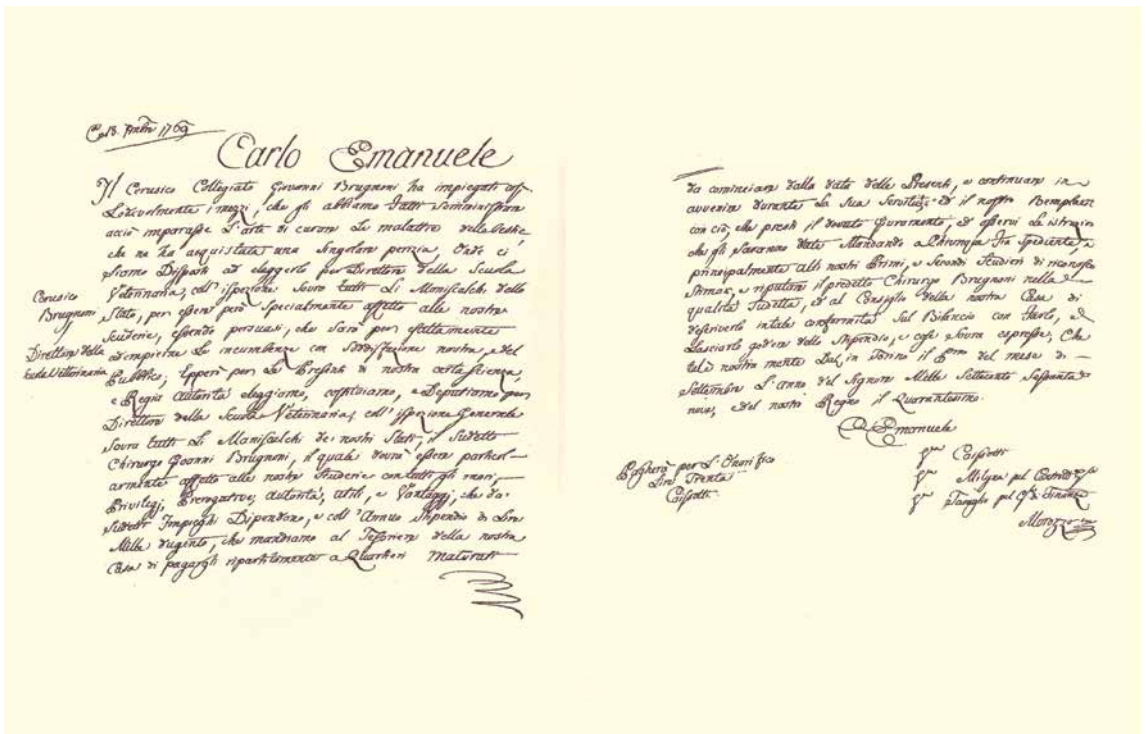 1769
Carlo Emanuele
Il Cerusico Collegiato Giovanni Brugnoni ha impiegati
Lodevolmente i mezzi, che gli abbiamo fatti somministrare
acciò imparasse l'arte di curare le malattie delle bestie,
che ne ha acquistata una singolare perizia, Onde ci
siamo Disposti ad eleggerlo per Direttore della Scuola
Veterinaria, coll'ispezione Sovra tutti Li Maniscalchi dello
Stato, per essere però specialmente affetto alle nostre
Scuderie, essendo persuasi, che sarà per esattamente
adempierne Le incumbenze con Soddisfazione nostra, e del
Pubblico; Epperò per Le Presenti di nostra certa scienza,
e Regia autorità eleggiamo, costituiamo, e Deputiamo per
Direttore della Scuola Veterinaria, coll'ispezione Generale
Sovra tutti Li Maniscalchi de' nostri Stati, il Sudetto
Chirurgo Gioanni Brugnoni, il quale dovrà essere particol-
armente affetto alle nostre Scuderie con tutti gli onori,
Privilegj, Prerogative, autorità, utili, e Vantaggi, che da'
Sudetti Impieghi Dipendono, e coll'Annuo Stipendio di Lire
Mille dugento, che mandiamo al Tesoriere della nostra
Casa di pagargli ripartitamente a Quartieri maturati
Cerusico
Brugnoni
Direttore della
Scuola Vetterinaria
da cominciare dalla data delle Presenti, e continuare in
avvenire durante La Sua Servitù, ed il nostro Beneplacito
con ciò, che presti il dovuto Giuramento, ed osservi Le istruzioni
che gli Saranno date Mandando a Chiunque fia spediente, e
principalmente alli nostri Primi, e Secondi Scudieri di riconoscere
Stimar, e riputare il predetto Chirurgo Brugnoni nella
qualità Sudetta, ed al Consiglio della nostra Casa di
descriverlo in tale conformità Sul Bilancio con farlo, e
Lasciarlo godere dello Stipendio, e cose Sovra espresse; Che
tal'è nostra mente Dat. in Torino il del mese di
Settembre L'anno del Signore Mille Settecento Sessanta
nove, e del nostro Regno il Quarantesimo.
Emanuele
Pagherà per L'Onorifico
Lire Trenta
Caissotti
Caissotti
pel
pel Finanze
Morozzo